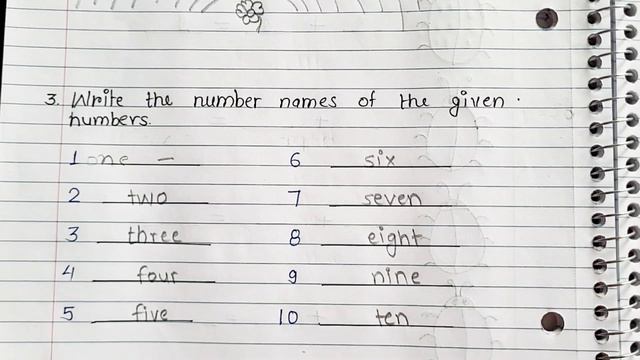 3. Write the number names of the given
numbers.
1 one 6 six
2 two 7 seven
3 three 8 eight
4 four 9 nine
5 five 10 ten